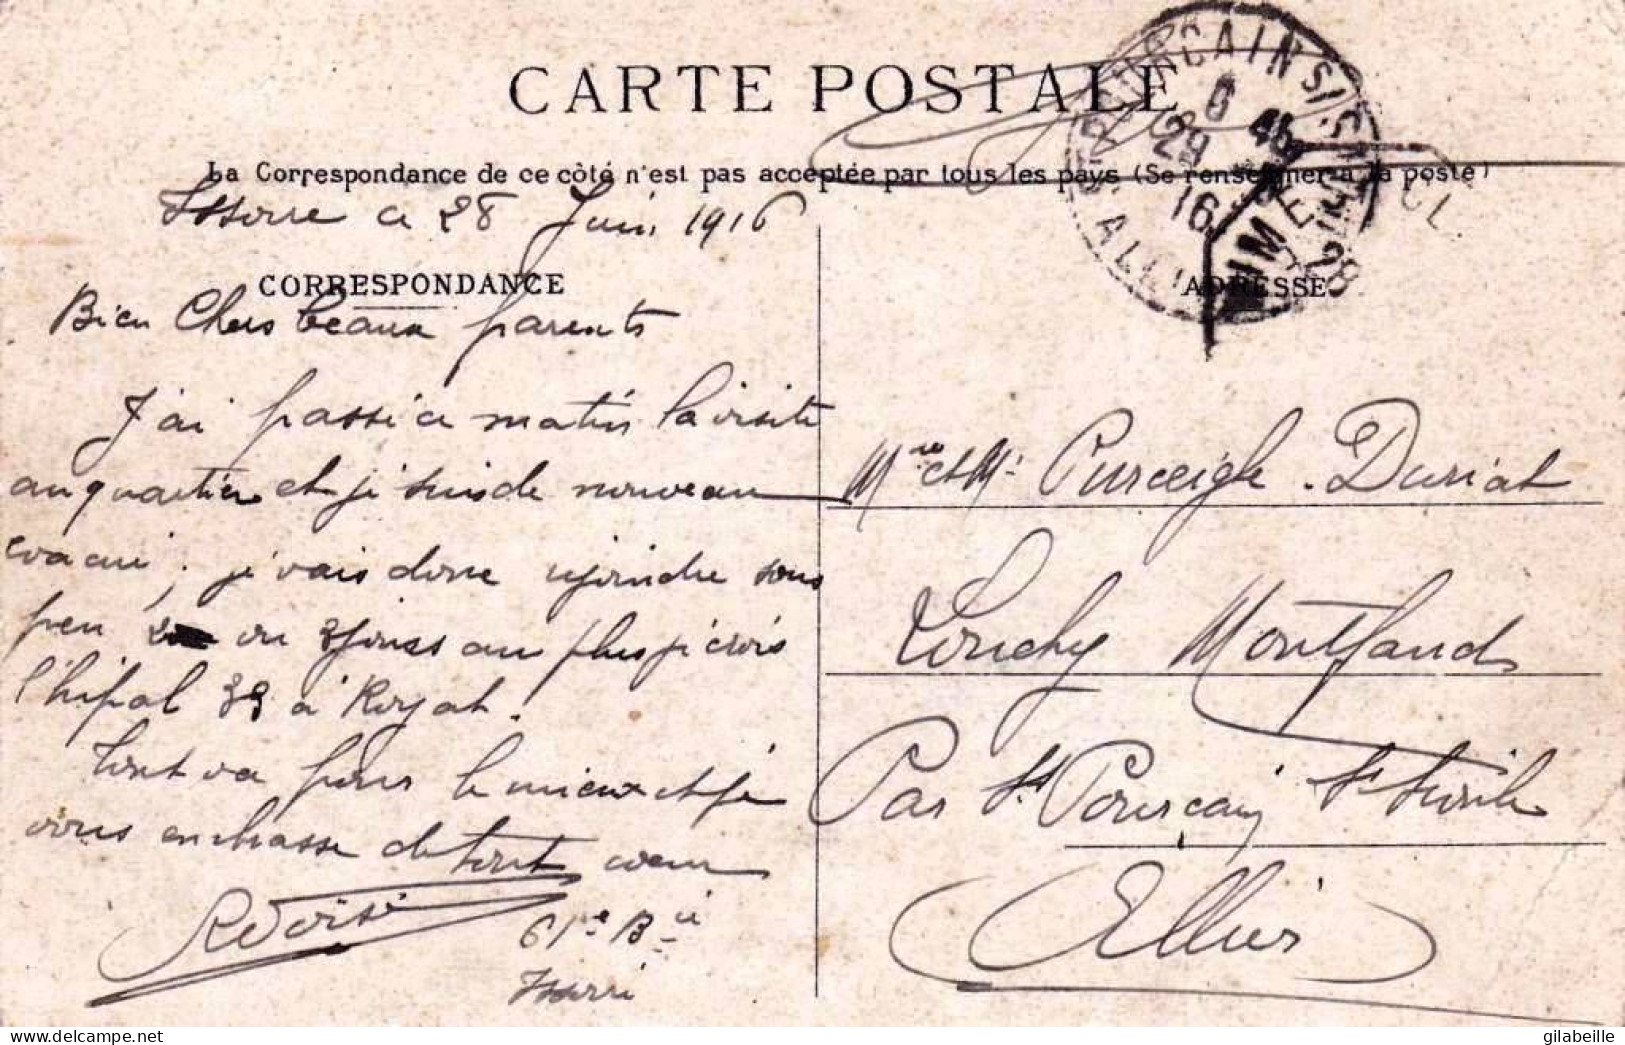 CARTE POSTALE
La Correspondance de ce côté n'est pas acceptée par tous les pays (Se renseigner à la poste)
Issoire ce 28 Juin 1916
CORRESPONDANCE
Bien Chers beaux parents
J'ai passé ce matin la visite
au quartier et je suis de nouveau
évacué, je vais donc rejoindre sous
peu 2 ou 3 jours au plus je crois
l'hôpital 39 à Royat.
Tout va pour le mieux et je
vous embrasse de tout cœur
61e Bie
Issoire
ADRESSE
Mr et Me Purseigle - Duriat
Louchy Montfand
Par St Pourcain s/ Sioule
Allier
29
16
gilabeille